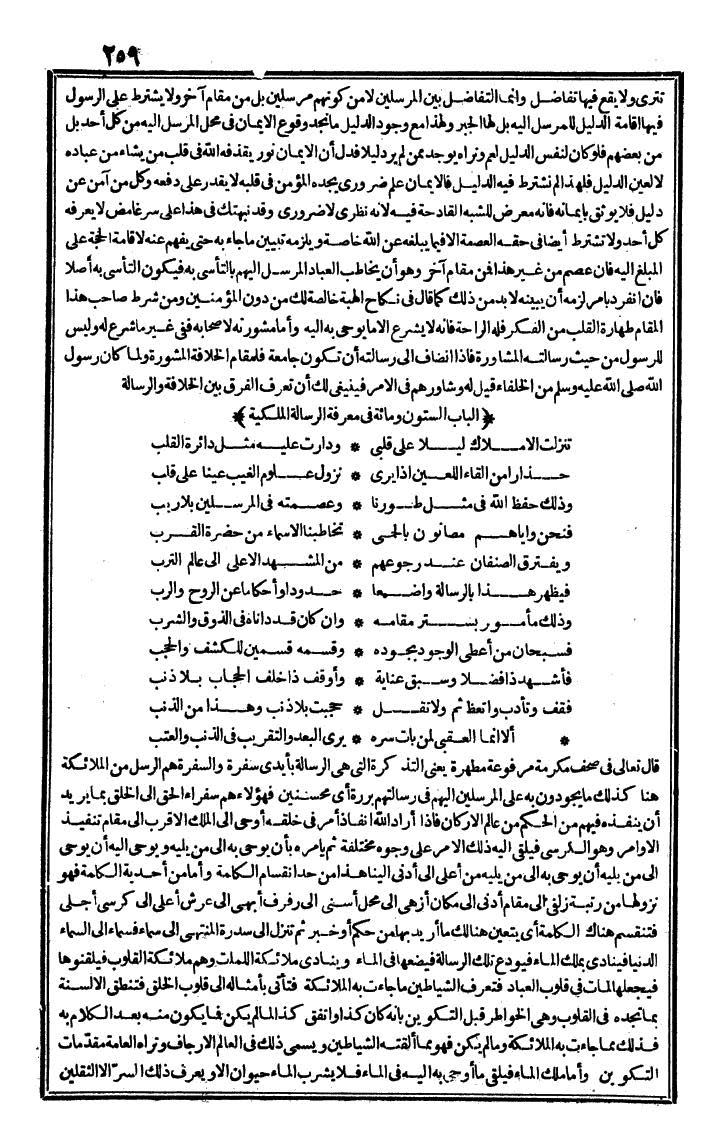 ٢٥٩
تترى ولا يقع فيها تفاضل وانما التفاضل بين المرسلين لا من كونهم مرسلين بل من مقام آخر ولا يشترط على الرسول
فيها اقامة الدليل للمرسل اليه بل لها الجبر ولهذا مع وجود الدليل ما نجد وقوع الايمان فى محل المرسل اليه من كل أحد بل
من بعضهم فلو كان لنفس الدليل لعم ونراه يوجد ممن لم ير دليلا فدل أن الايمان نور يقذفه الله فى قلب من يشاء من عباده
لا لعين الدليل فلهذا لم نشترط فيه الدليل فالايمان علم ضرورى يجده المؤمن فى قلبه لا يقدر على دفعه وكل من آمن عن
دليل فلا يوثق بايمانه فانه معرض للشبه القادحة فيه لانه نظرى لا ضرورى وقد نبهتك فى هذا على سر غامض لا يعرفه
كل أحد ولا تشترط أيضا فى حقه العصمة الا فيما يبلغه عن الله خاصة ويلزمه تبيين ما جاء به حتى يفهم عنه لاقامة الحجة على
المبلغ اليه فان عصم من غير هذا فمن مقام آخر وهو أن يخاطب العباد المرسل اليهم بالتأسى به فيكون التأسى به أصلا
فان انفرد بامر لزمه أن يبينه لابد من ذلك كما قال فى نكاح الهبة خالصة لك من دون المؤمنين ومن شرط صاحب هذا
المقام طهارة القلب من الفكر فله الراحة فانه لا يشرع الا ما يوحى به اليه وأما مشورته لاصحابه ففى غير ما شرع له وليس
للرسول من حيث رسالته المشاورة فاذا انضاف الى رسالته أن تكون جامعة فلمقام الخلافة المشورة ولما كان رسول
الله صلى الله عليه وسلم من الخلفاء قيل له وشاورهم فى الامر فينبغى لك أن تعرف الفرق بين الخلافة والرسالة
﴿الباب الستون ومائة فى معرفة الرسالة الملكية﴾
تنزلت الاملاك ليلا على قلبى * ودارت عليه مثل دائرة القلب
حذارا من القاء اللعين اذا يرى * نزول علوم الغيب عينا على قلب
وذلك حفظ الله فى مثل طورنا * وعصمته فى المرسلين بلا ريب
فنحن واياهم مصانون بالحمى * تخاطبنا الاسماء من حضرة القرب
ويفترق الصنفان عند رجوعهم * من المشهد الاعلى الى عالم الترب
فيظهر هذا بالرسالة واضعا * حدودا وأحكاما عن الروح والرب
وذلك مأمور بستر مقامه * وان كان قد داناه فى الذوق والشرب
فسبحان من أعطى الوجود بجوده * وقسمه قسمين للكشف والحجب
فأشهد ذا فضلا وسبق عناية * وأوقف ذا خلف الحجاب بلا ذنب
فقف وتأدب واتعظ ثم ولا تقل * حجبت بلا ذنب وهذا من الذنب
* ألا انما العقبى لمن بات سره * يرى البعد والتقريب فى الذنب والعتب
قال تعالى فى صحف مكرمة مرفوعة مطهرة يعنى التذكرة التى هى الرسالة بأيدى سفرة والسفرة هم الرسل من الملائكة
هنا كذلك ما يجودون به على المرسلين اليهم فى رسالتهم بررة أى محسنين فهؤلاء هم سفراء الحق الى الخلق بما يريد
أن ينفذه فيهم من الحكم من عالم الاركان فاذا أراد الله انفاذ أمر فى خلقه أوحى الى الملك الاقرب الى مقام تنفيذ
الاوامر وهو الكرسى فيلقى اليه ذلك الامر على وجوه مختلفة ثم يامره بأن يوحى به الى من يليه ويوحى اليه أن يوحى
الى من يليه أن يوحى به الى من يليه من أعلى الى أدنى الينا هذا من حد انقسام الكلمة وأما من أحدية الكلمة فهو
نزولها من رتبة زلفى الى مقام أدنى الى مكان أزهى الى محل أسنى الى رفرف أبهى الى عرش أعلى الى كرسى أجلى
فتنقسم هناك الكلمة أى يتعين هنالك ما أريد بها من حكم أو خبر ثم تنزل الى سدرة المنتهى الى سماء فسماء الى السماء
الدنيا فينادى بملك الماء فيودع تلك الرسالة فيضعها فى الماء وينادى ملائكة اللمات وهم ملائكة القلوب فيلقنوها
فيجعلها لمات فى قلوب العباد فتعرف الشياطين ما جاءت به الملائكة فتأتى بأمثاله الى قلوب الخلق فتنطق الالسنة
بما تجده فى القلوب وهى الخواطر قبل التكوين بانه كان كذا واتفق كذا لما لم يكن فما يكون منه بعد الكلام به
فذلك مما جاءت به الملائكة وما لم يكن فهو مما ألقته الشياطين ويسمى ذلك فى العالم الارجاف وتراه العامة مقدمات
التكوين وأما ملك الماء فيلقى ما أوحى به اليه فى الماء فلا يشرب الماء حيوان الا ويعرف ذلك السر الا الثقلين